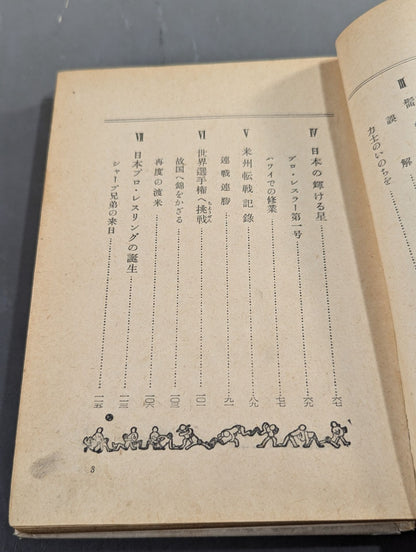 III
誤解
力士のいのちを
IV 日本の輝ける星 六七
プロ・レスラー第一号 六九
ハワイでの修業 七七
V 米州転戦記録 八九
連戦連勝 九一
VI 世界選手権へ挑戦 一〇一
故国へ錦をかざる 一〇三
再度の渡米 一〇六
VII 日本プロ・レスリングの誕生 一一三
シャープ兄弟の来日 一一五
3